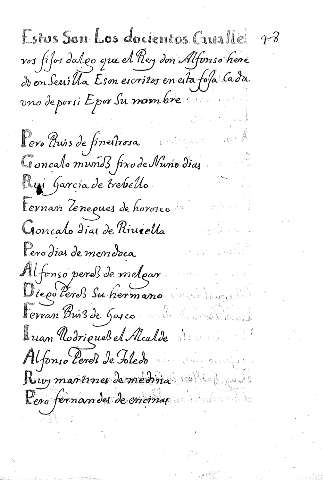 Estos Son Los docientos Cavalle 48
ros fijos dalgo que el Rey don Alfonso here
do en Sevilla Eson escritos en esta foja Cada
uno de porsi E por Su nombre
Pero Ruis de finestrosa
Goncalo muños fixo de Nuño dias
Rui Garcia de trebello
Fernan Tenegues de horosco
Goncalo dias de
Pero dias de mendoca
Alfonso peres de melgar
Diego Peres Su hermano
Ferran Ruis de Gasco
Iuan Rodrigues el Alcalde
Alfonso Peres de Toledo
Ruy martines de medina
Pero fernandes de encinas